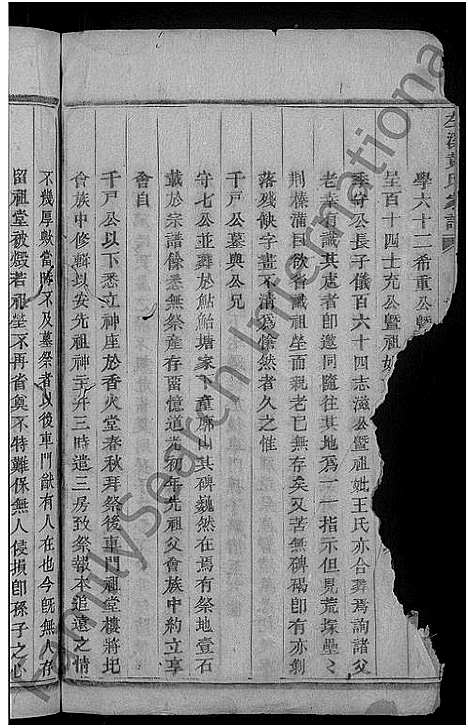 學六十二希重公暨
塋百十四士充公暨祖妣
季守公長子儀百六十四志滋公暨祖妣王氏亦合葬焉詢諸父
老幸有識其處者即邀同隨往其地為一一指示但見荒塚壘〻
荆榛滿目欲省識祖塋而親老已無存矣又苦無碑碣即有亦剝
落殘缺字畫不清為愴然者久之惟
千戸公墓與公兄
守七公並葬於鮎鮐塘家下童廓山其碑巍然在焉有祭地壹石
載於宗譜餘悉無祭產存留憶道光初年先祖父會族中約立享
會自
千戸公以下悉立神座於香火堂春秋拜祭後車門祖堂樓將圯
會族中修輯以安先祖神主并三時遣三房致祭報本追遠之情
不幾厚歟當時不及墓祭者以後車門猷有人在也今既無人存
留祖堂被燬若祖塋不再省奠不特難保無人侵損即孫子之心
黄氏家譜
FamilySearch International